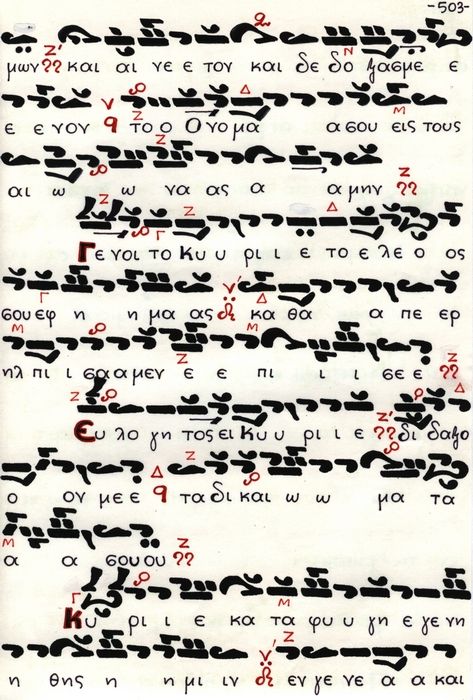 -503-
μων και αι νε ε τον και δε δο ξασμε ε
ε ε νον το ο Ονομα α σου εις τους
αι ω ω να ας α α μην
Γε νοι το Κυ υ ρι ι ε το ε λε ο ος
σου εφ η η μα ας κα θα α περ ερ
ηλ πι ι σα α μεν ε ε πι ι ι σε ε
Ευ λο γη τος ει Κυ υ ρι ι ε δι δαξο
ο ον με ε τα δι και ω ω μα τα
α α σου ου
Κυ ρι ι ε κα τα φυ υ γη ε γε νη
η θης η η μι ιν εν γε νε α α και